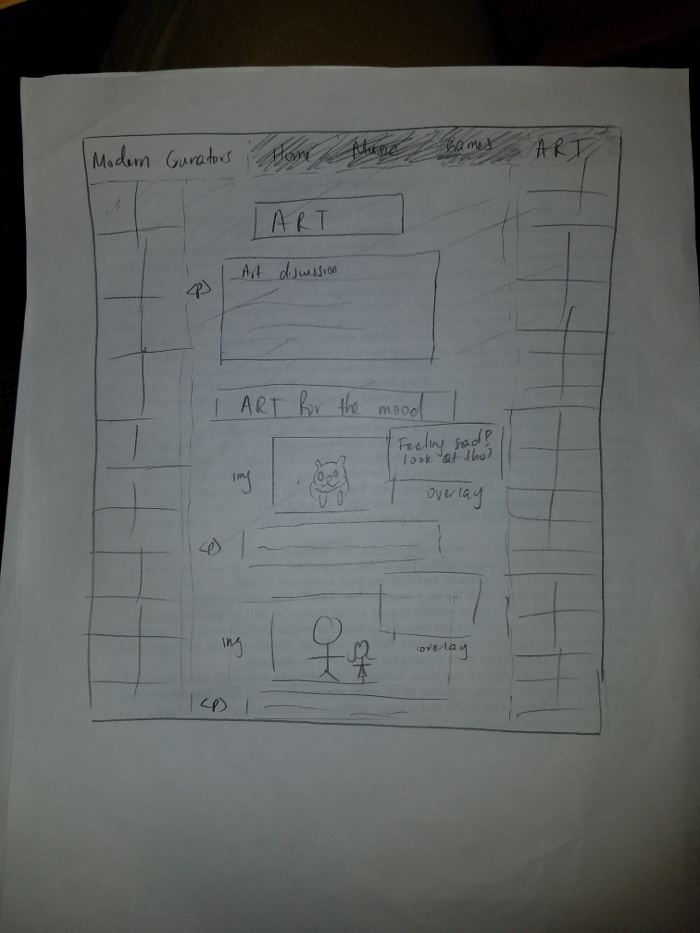 Modern Curators Home Music Games ART
ART
<p>
Art discussion
ART for the mood
img
Feeling sad?
look at this?
overlay
<p>
img
overlay
<p>